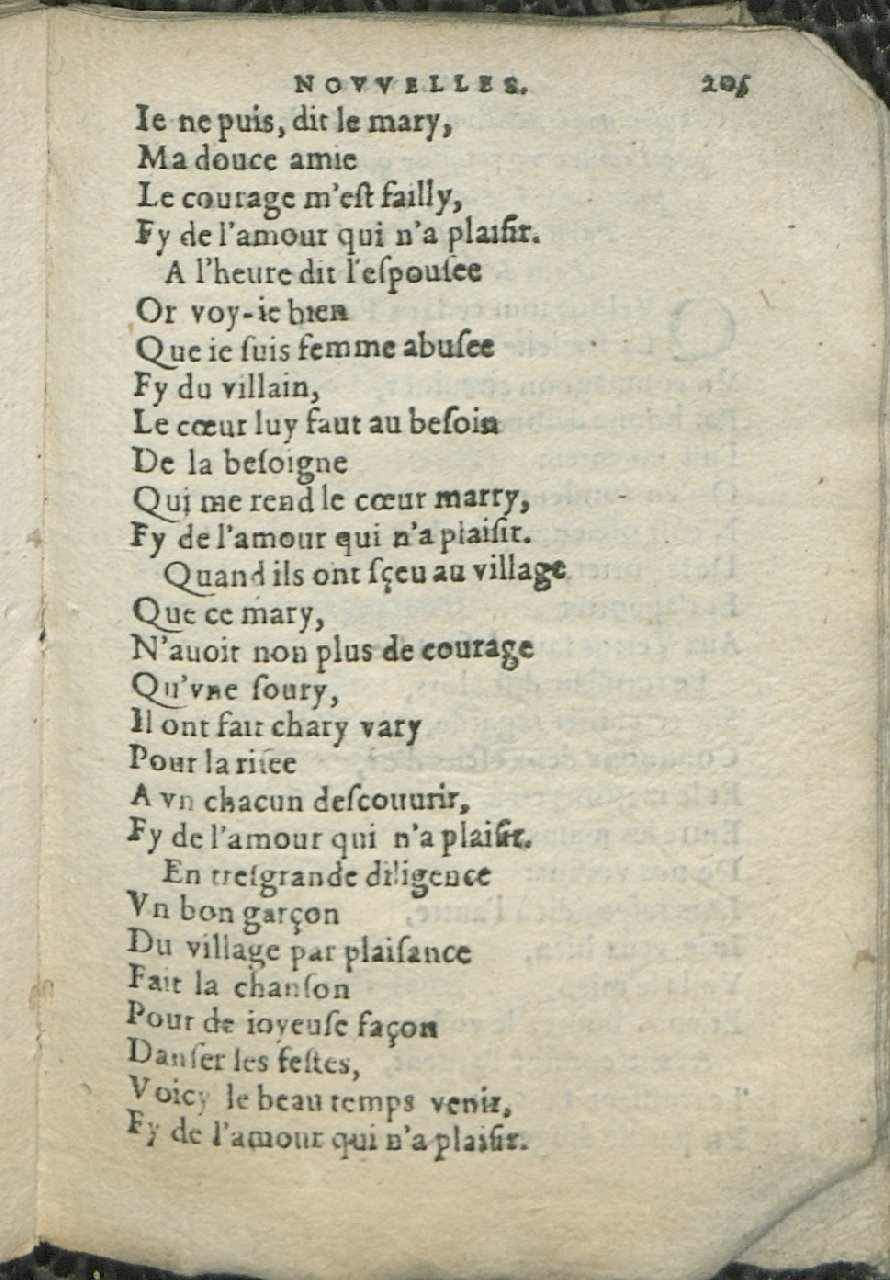 NOVVELLES. 205
Ie ne puis, dit le mary,
Ma douce amie
Le courage m'eſt failly,
Fy de l'amour qui n'a plaiſir.
A l'heure dit l'eſpouſee
Or voy-ie bien
Que ie ſuis femme abuſee
Fy du villain,
Le cœur luy faut au beſoin
De la beſoigne
Qui me rend le cœur marry,
Fy de l'amour qui n'a plaiſir.
Quand ils ont ſçeu au village
Que ce mary,
N'auoit non plus de courage
Qu'vne ſoury,
Il ont fait chary vary
Pour la riſee
A vn chacun deſcouurir,
Fy de l'amour qui n'a plaiſir.
En treſgrande diligence
Vn bon garçon
Du village par plaiſance
Fait la chanſon
Pour de ioyeuſe façon
Danſer les feſtes,
Voicy le beau temps venir,
Fy de l'amour qui n'a plaiſir.